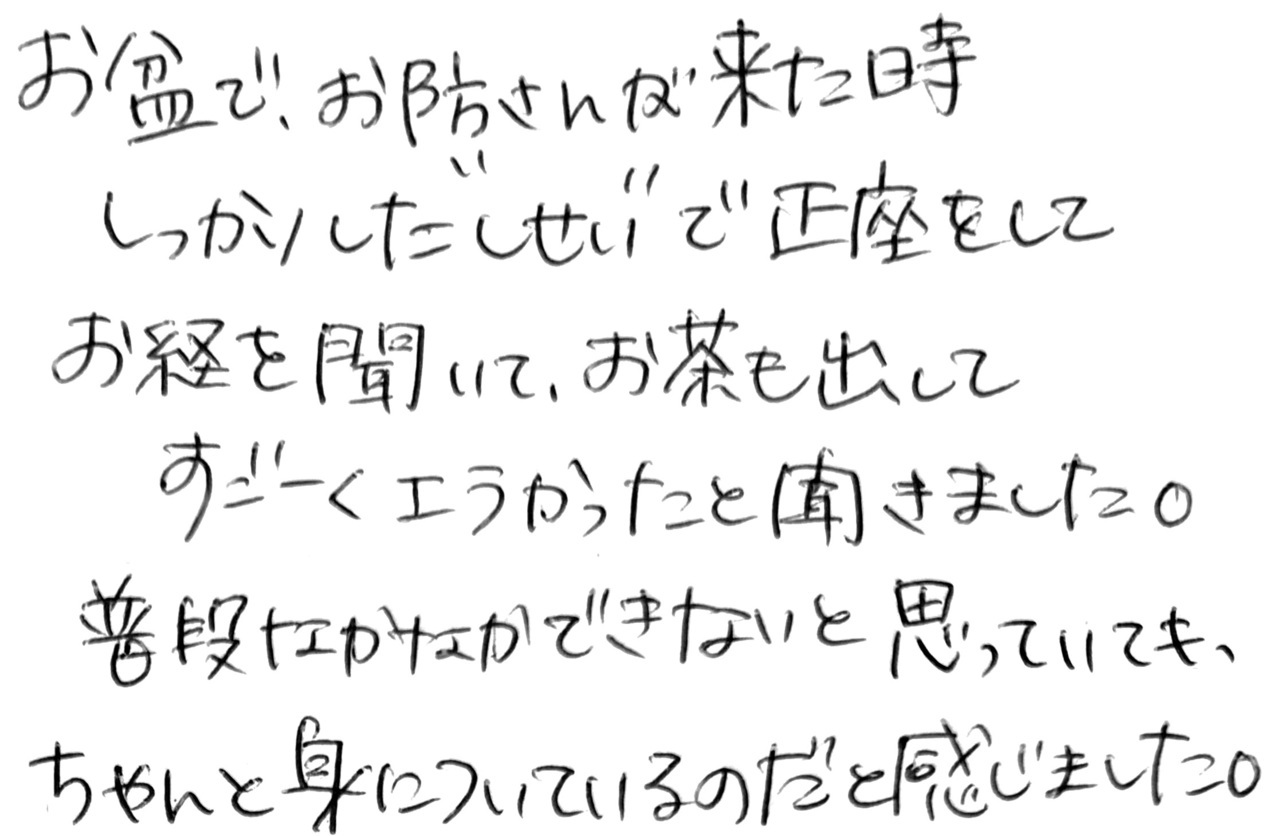 お盆で、お防さんが来た時
しっかりしたしせいで正座をして
お経を聞いて、お茶も出して
すごーくエラかったと聞きました。
普段なかなかできないと思っていても、
ちゃんと身についているのだと感じました。